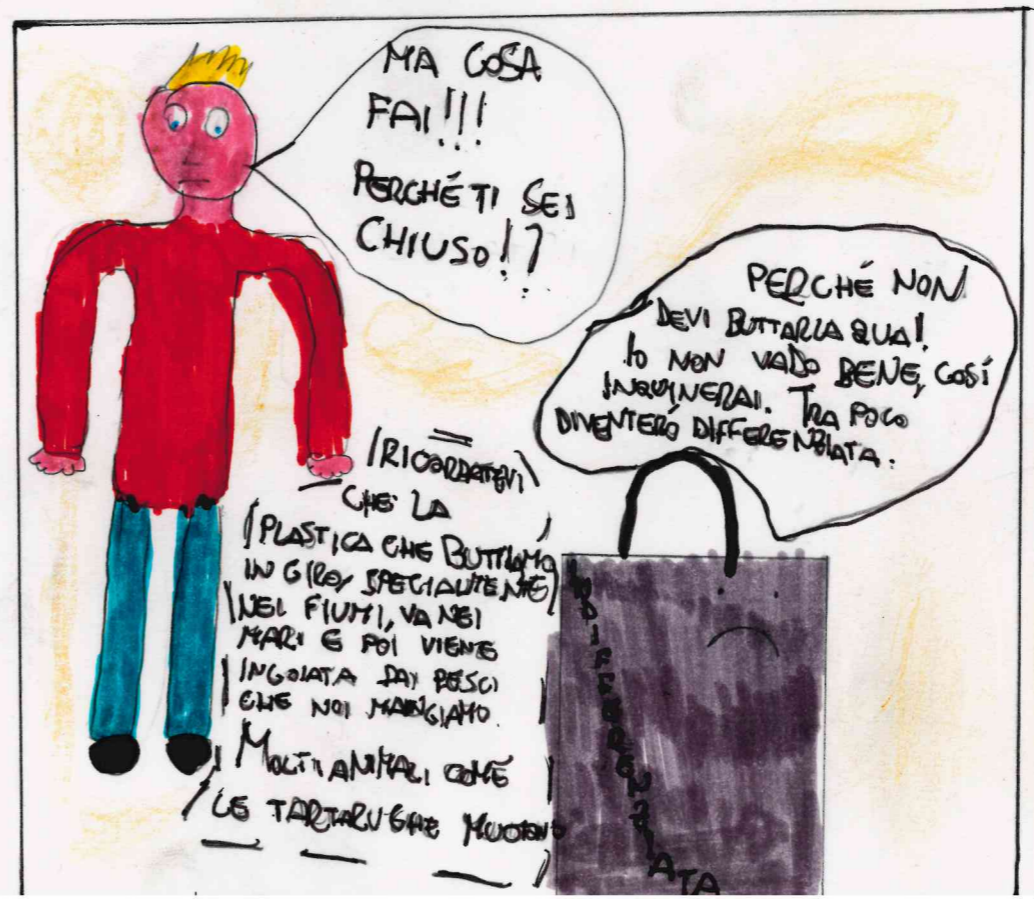 MA COSA
FAI!!!
PERCHÉ TI SEI
CHIUSO!?
PERCHÉ NON
DEVI BUTTARLA QUA!
IO NON VADO BENE, COSÍ
INQUINERAI. TRA POCO
DIVENTERÓ DIFFERENZIATA.
RICORDATEVI
CHE LA
PLASTICA CHE BUTTIAMO
IN GIRO, SPECIALMENTE
NEI FIUMI, VA NEI
MARI E POI VIENE
INGOIATA DAI PESCI
CHE NOI MANGIAMO.
MOLTI ANIMALI COME
LE TARTARUGHE MUOIONO